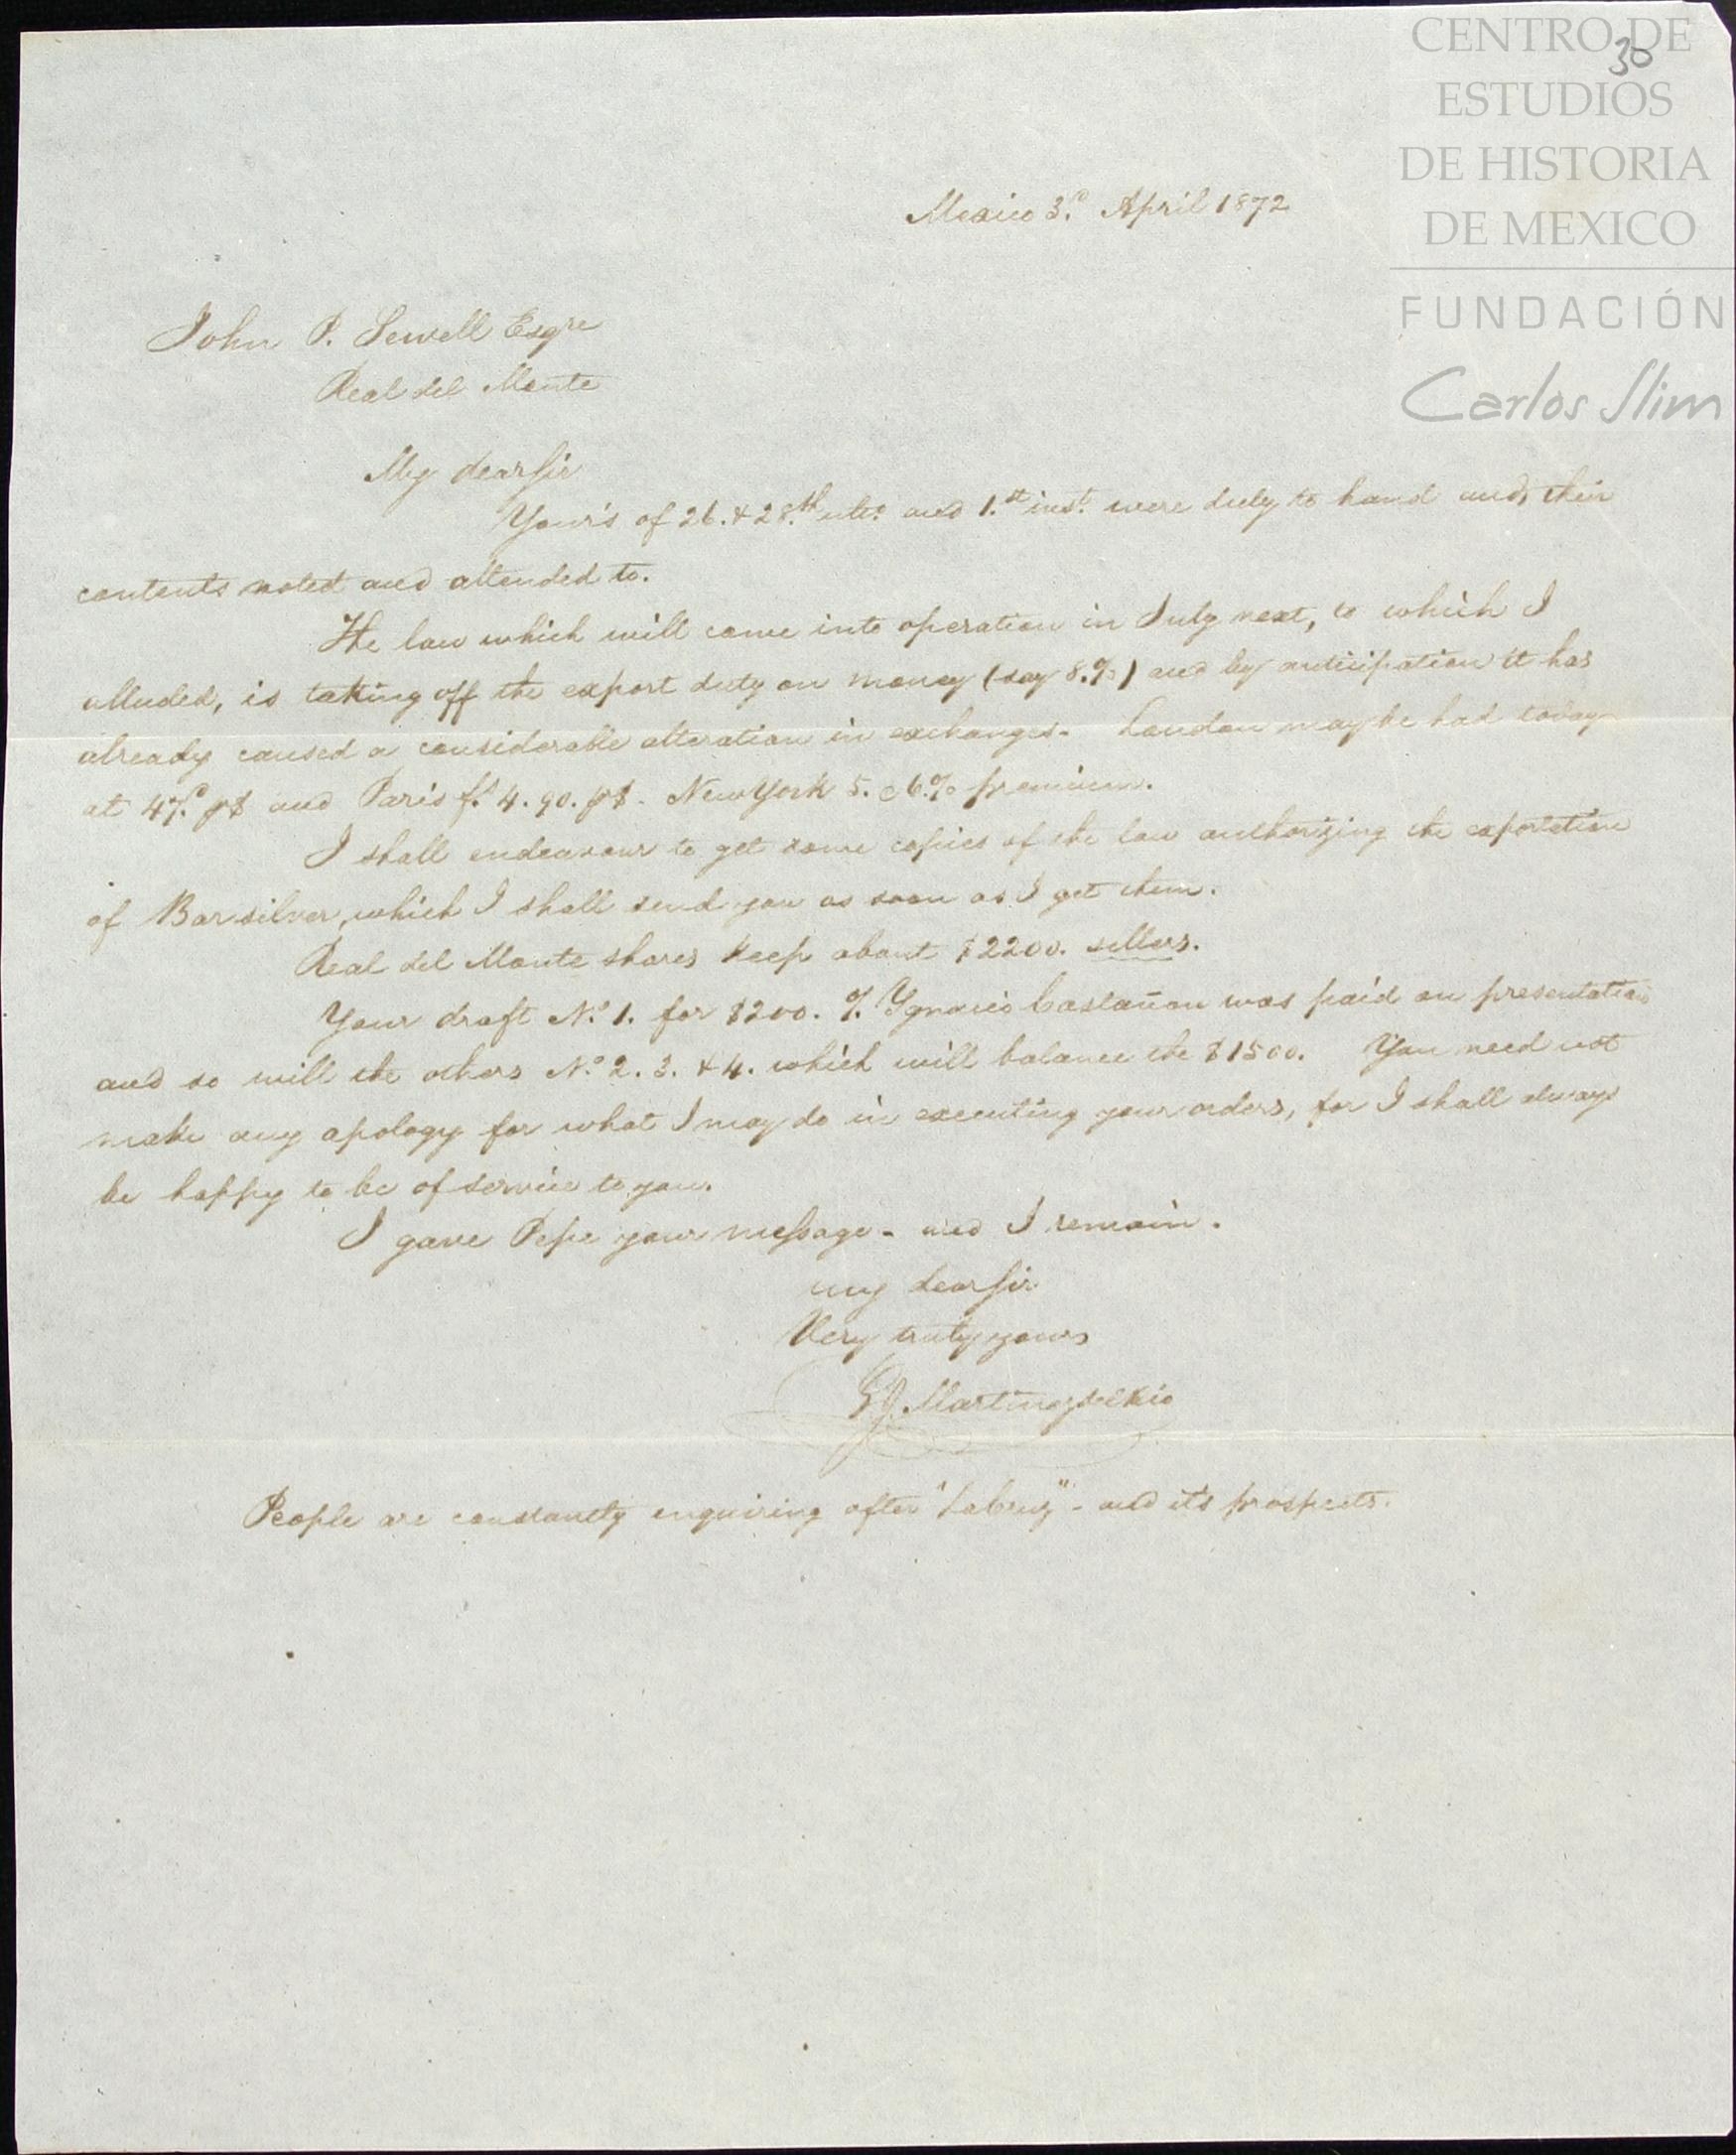 CENTRO DE
ESTUDIOS
DE HISTORIA
DE MEXICO
FUNDACIÓN
Carlos Slim
30
Mexico 3.d April 1872
John P. Sewell Esqre
Real del Monte
My dear Sir
Your's of 26. & 28.th ulto. and 1.st inst. were duly to hand and their
contents noted and attended to.
The law which will come into operation in July next, to which I
alluded, is taking off the export duty on money (say 8.%) and by anticipation it has
already caused a considerable alteration in exchanges. London may be had today
at 47.d p$ and Paris f.s 4.90. p$. New York 5. a 6.% premium.
I shall endeavour to get some copies of the law authorizing the exportation
of Bar silver, which I shall send you as soon as I get them.
Real del Monte shares keep about $2200. sellers.
Your draft N.o 1. for $200. Ygnacio Castañon was paid on presentation
and so will the others N.o 2. 3. & 4. which will balance the $1500. You need not
make any apology for what I may do in executing your orders, for I shall always
be happy to be of service to you.
I gave Pepe your message - and I remain.
my dear Sir
Very truly yours
Martinez del Rio
People are constantly enquiring after - and it's prospects.